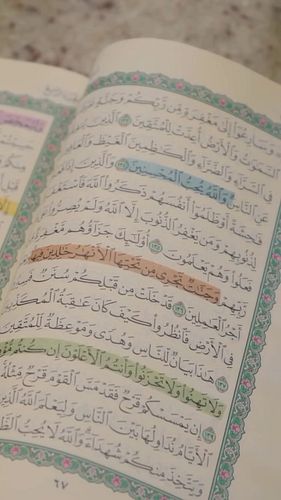 ۞ وَسَارِعُوٓا۟ إِلَىٰ مَغْفِرَةٍ مِّن رَّبِّكُمْ وَجَنَّةٍ
ٱلسَّمَٰوَٰتُ وَٱلْأَرْضُ أُعِدَّتْ لِلْمُتَّقِينَ ١٣٣
فِى ٱلسَّرَّآءِ وَٱلضَّرَّآءِ وَٱلْكَٰظِمِينَ ٱلْغَيْظَ وَٱلْعَافِينَ
عَنِ ٱلنَّاسِ وَٱللَّهُ يُحِبُّ ٱلْمُحْسِنِينَ ١٣٤ وَٱلَّذِينَ إِذَا
فَٰحِشَةً أَوْ ظَلَمُوٓا۟ أَنفُسَهُمْ ذَكَرُوا۟ ٱللَّهَ فَٱسْتَغْفَرُوا۟
لِذُنُوبِهِمْ وَمَن يَغْفِرُ ٱلذُّنُوبَ إِلَّا ٱللَّهُ وَلَمْ يُصِرُّوا۟
فَعَلُوا۟ وَهُمْ يَعْلَمُونَ ١٣٥ أُو۟لَٰٓئِكَ جَزَآؤُهُم مَّغْفِرَةٌ
رَّبِّهِمْ وَجَنَّٰتٌ تَجْرِى مِن تَحْتِهَا ٱلْأَنْهَٰرُ خَٰلِدِينَ فِيهَا
أَجْرُ ٱلْعَٰمِلِينَ ١٣٦ قَدْ خَلَتْ مِن قَبْلِكُمْ سُنَنٌ فَسِيرُوا۟
فِى ٱلْأَرْضِ فَٱنظُرُوا۟ كَيْفَ كَانَ عَٰقِبَةُ ٱلْمُكَذِّبِينَ
١٣٧ هَٰذَا بَيَانٌ لِّلنَّاسِ وَهُدًى وَمَوْعِظَةٌ لِّلْمُتَّقِينَ
١٣٨ وَلَا تَهِنُوا۟ وَلَا تَحْزَنُوا۟ وَأَنتُمُ ٱلْأَعْلَوْنَ إِن كُنتُم مُّؤْمِنِينَ
١٣٩ إِن يَمْسَسْكُمْ قَرْحٌ فَقَدْ مَسَّ ٱلْقَوْمَ قَرْحٌ مِّثْلُهُۥ
ٱلْأَيَّامُ نُدَاوِلُهَا بَيْنَ ٱلنَّاسِ وَلِيَعْلَمَ ٱللَّهُ
وَيَتَّخِذَ مِنكُمْ شُهَدَآءَ وَٱللَّهُ لَا يُحِبُّ
٦٧